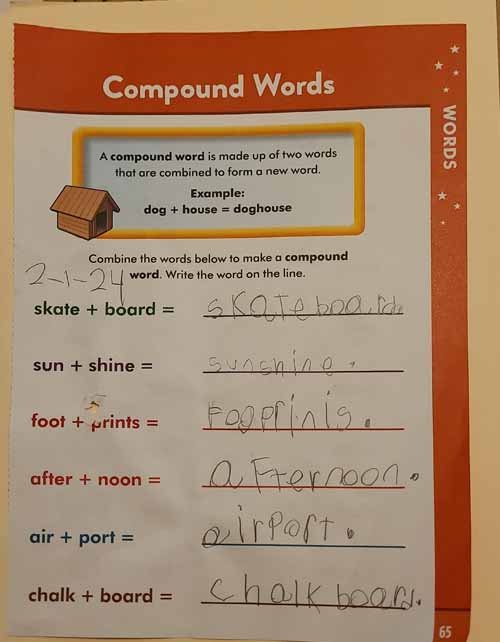 Compound Words
WORDS
A compound word is made up of two words
that are combined to form a new word.
Example:
dog + house = doghouse
Combine the words below to make a compound
word. Write the word on the line.
2-1-24
skate + board = skateboard.
sun + shine = sunshine.
foot + prints = Fooprinis.
after + noon = aFternoon.
air + port = airPort.
chalk + board = chalkboard.
65